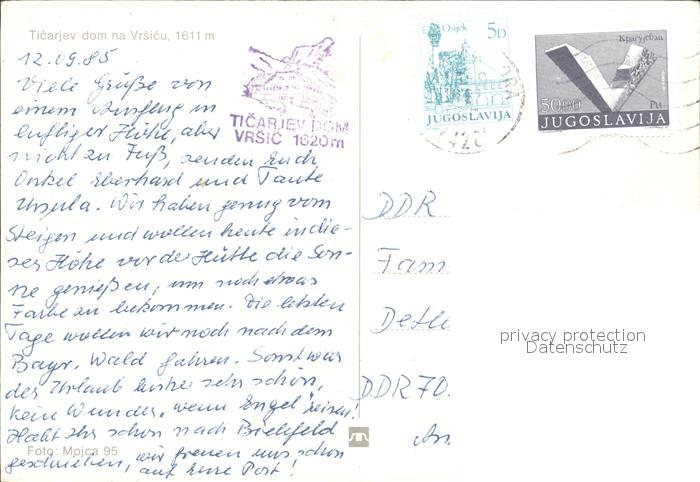 Tičarjev dom na Vršiču, 1611 m
12.09.85
Viele Grüße von
einem Ausflug in
luftiger Höhe, aber
nicht zu Fuß, senden Euch
Onkel Eberhard und Tante
Ursula. Wir haben genug vom
Steigen und wollen heute in die-
ser Höhe vor der Hütte die Son-
ne genießen, um noch etwas
Farbe zu bekommen. Die letzten
Tage wollen wir noch nach dem
Bayr. Wald fahren. Sonst war
der Urlaub bisher sehr schön,
kein Wunder, wenn "Engel" reisen!
Habt Ihr schon nach Bielefeld
geschrieben, wir freuen uns schon
auf Eure Post!
Foto: Mojca 95
TIČARJEV DOM
VRŠIČ 1620m
Osijek 5D
JUGOSLAVIJA
Крагујевац
50.00 Pu
JUGOSLAVIJA
DDR
Fam
Detle
DDR 70
privacy protection
Datenschutz